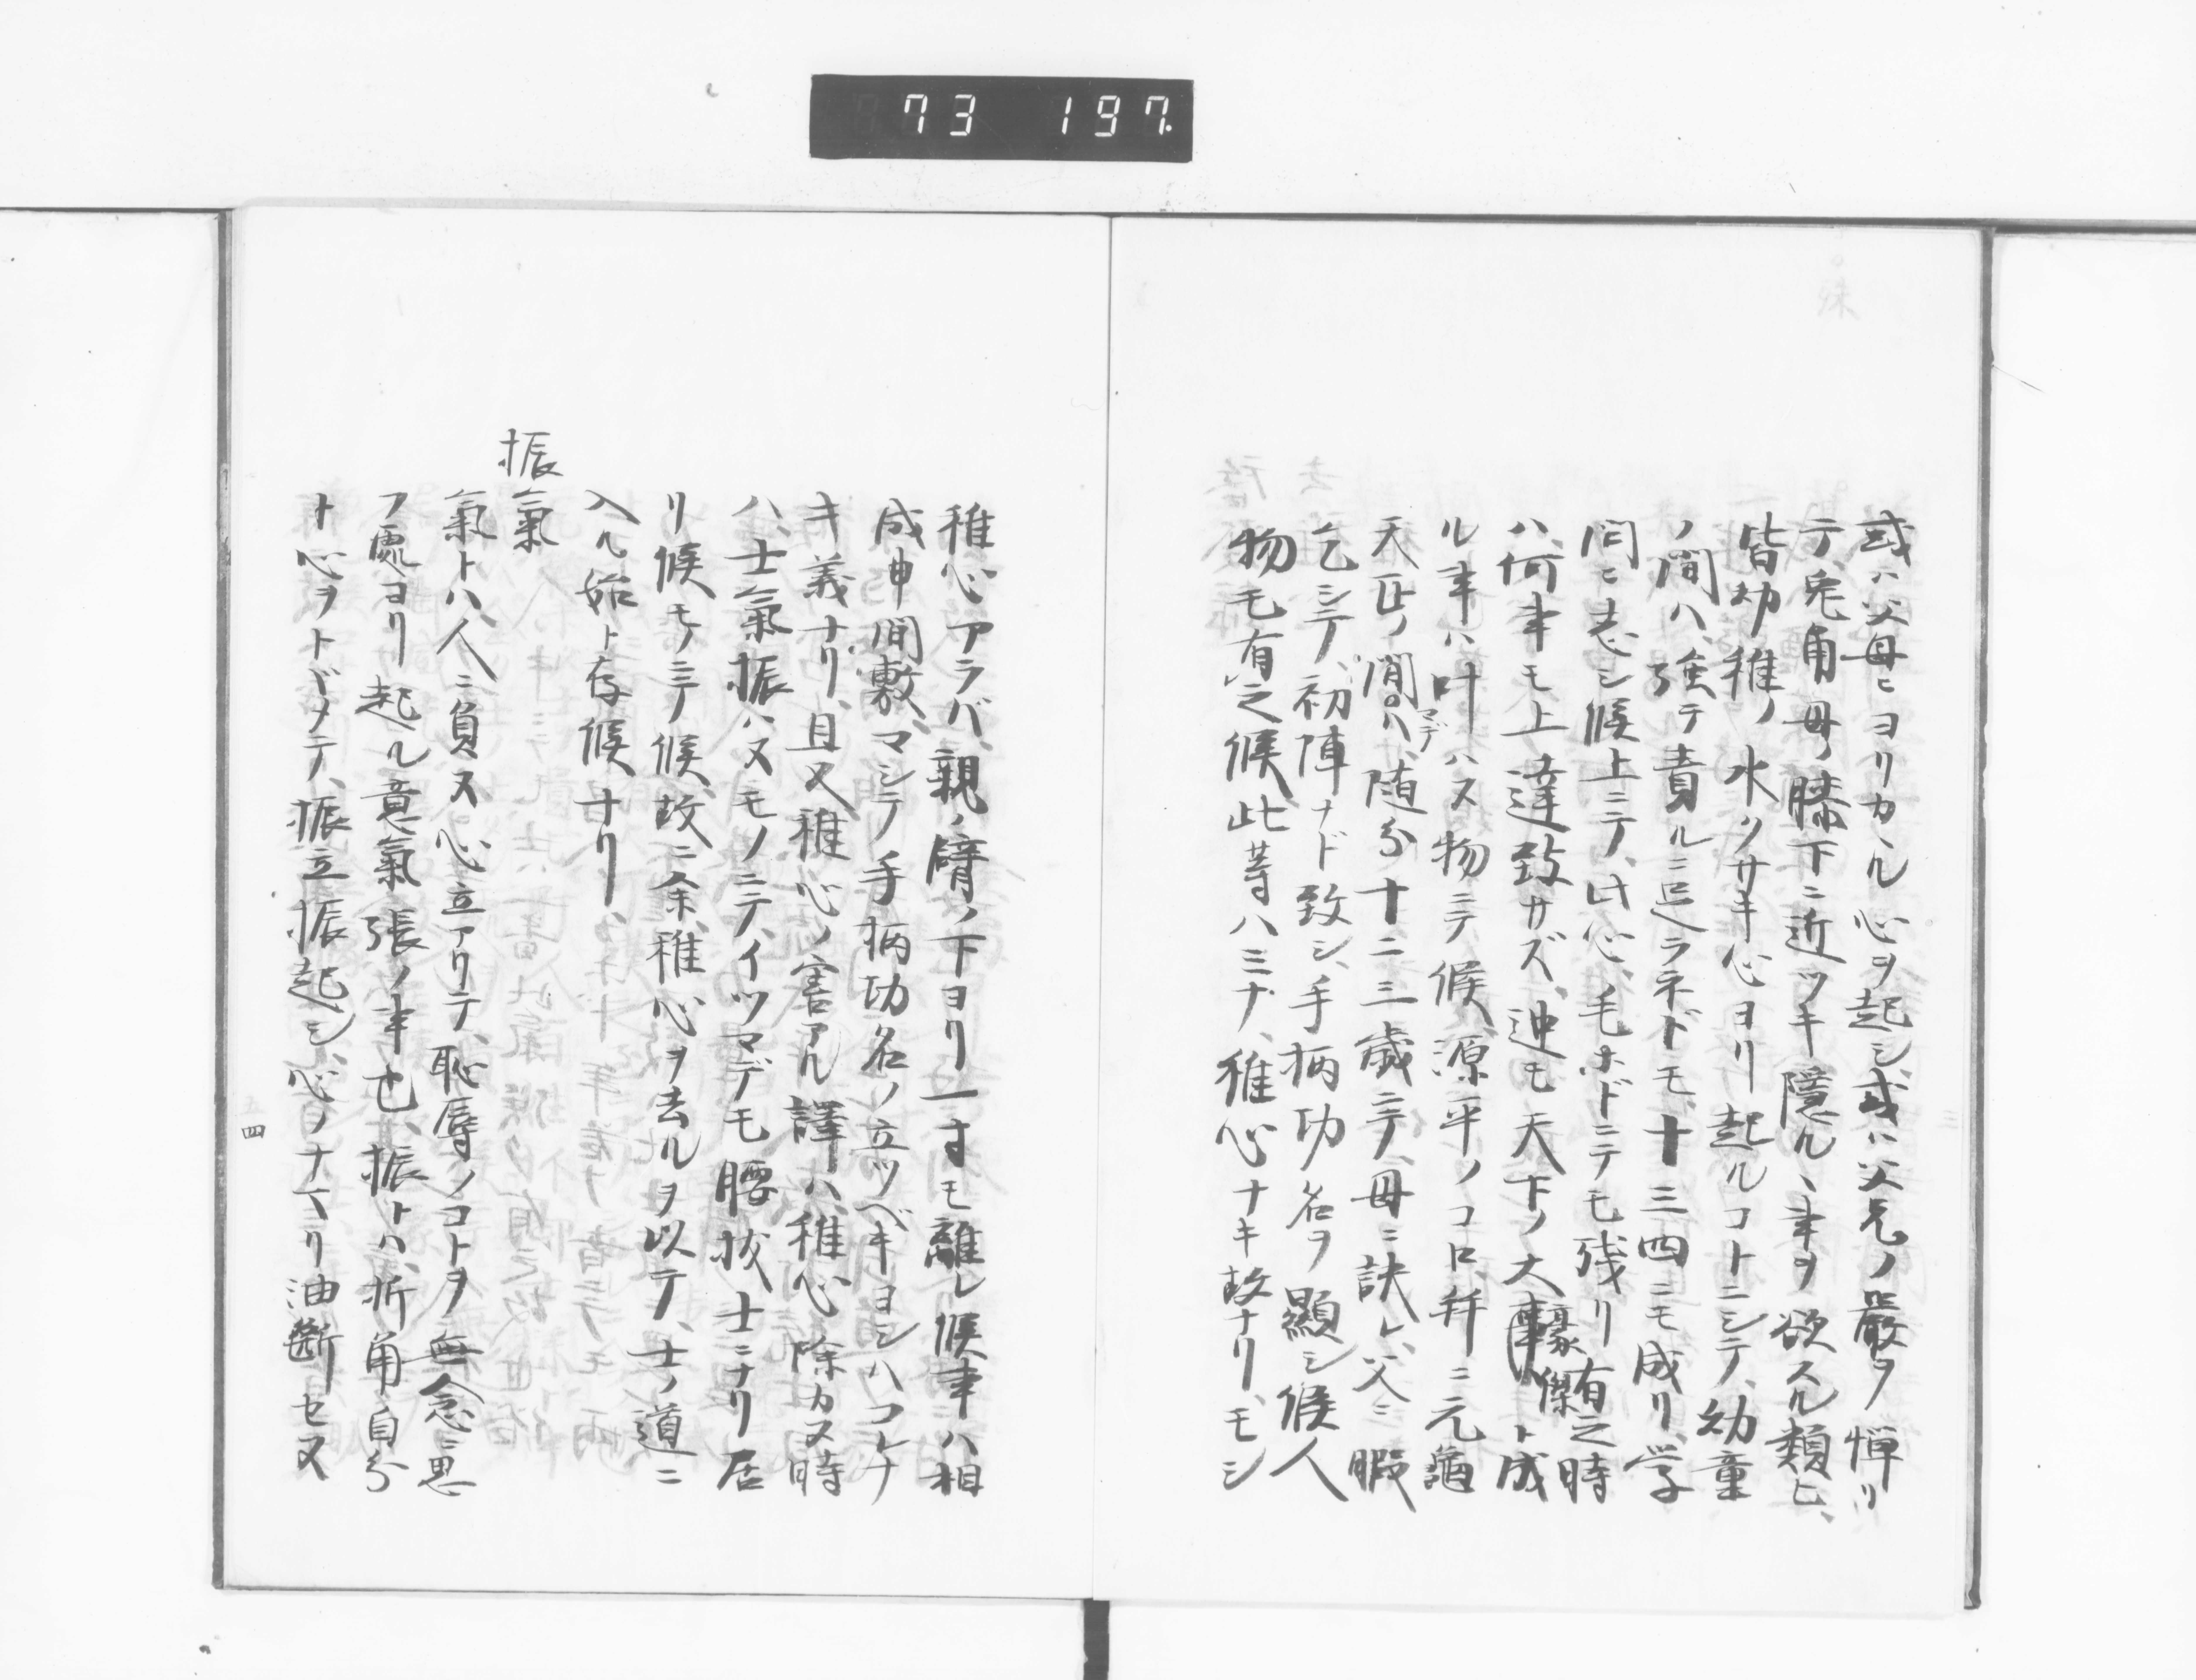 73 197
或ハ父母ニヨリカヽル心ヲ起シ、或ハ父兄ノ嚴ヲ憚リ
テ、兎角母ノ膝下ニ近ツキ隱ルヽ事ヲ欲スル類ヒ、
皆幼稚ノ水クサキ心ヨリ起ルコトニシテ、幼童
ノ間ハ、強テ責ルニ足ラネドモ、十三四ニモ成リ、学
問ニ志シ候上ニテ、此心毛ホドニテモ残リ有之時
ハ、何事モ上達致サズ、迚モ天下ノ大豪傑ト成
ル事ハ叶ハヌ物ニテ候、源平ノコロ、并ニ元龜
天正ノ間マデハ、随分十二三歳ニテ、母ニ訣レ、父ニ暇
乞シテ、初陣ナド致シ、手柄功名ヲ顯シ候人
物モ有之候、此等ハミナ、稚心ナキ故ナリ、モシ
稚心アラバ、親ノ臂ノ下ヨリ一寸モ離レ候事ハ相
成申間敷、マシテ手柄功名ノ立ツベキヨシハコレナ
キ義ナリ、且又稚心ノ害アル譯ハ、稚心除カヌ時
ハ、士氣振ハヌモノニテ、イツマデモ腰拔士ニナリ居
リ候モノニテ候、故ニ余稚心ヲ去ルヲ以テ、士ノ道ニ
入ル始ト存候ナリ、
振氣
氣トハ、人ニ負ヌ心立アリテ、恥辱ノコトヲ無念ニ思
フ處ヨリ起ル意氣張ノ事也、振トハ、折角自分
ト心ヲトヾメテ、振立振起シ、心ノナマリ油斷セヌ
四